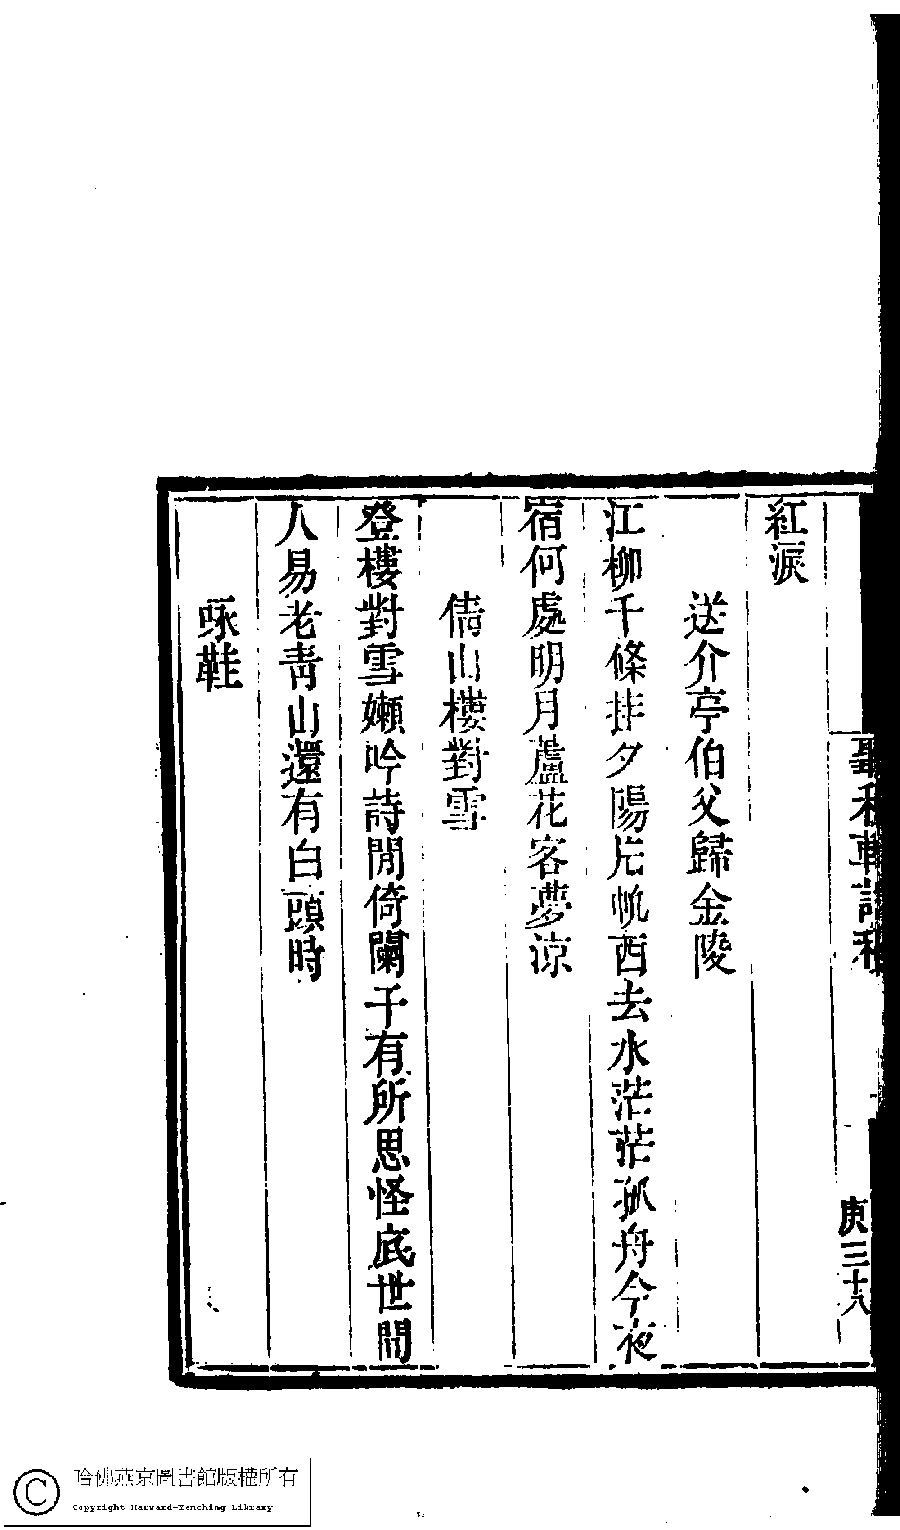 紅淚
送介亭伯父歸金陵
江柳千條挂夕陽片帆西去水茫茫孤舟今夜
宿何處明月蘆花客夢涼
倩山樓對雪
登樓對雪嬾吟詩閒倚闌干有所思怪底世間
人易老青山還有白頭時
咏鞋
庚三十八
哈佛燕京圖書館版權所有
Copyright Harvard-Yenching Library